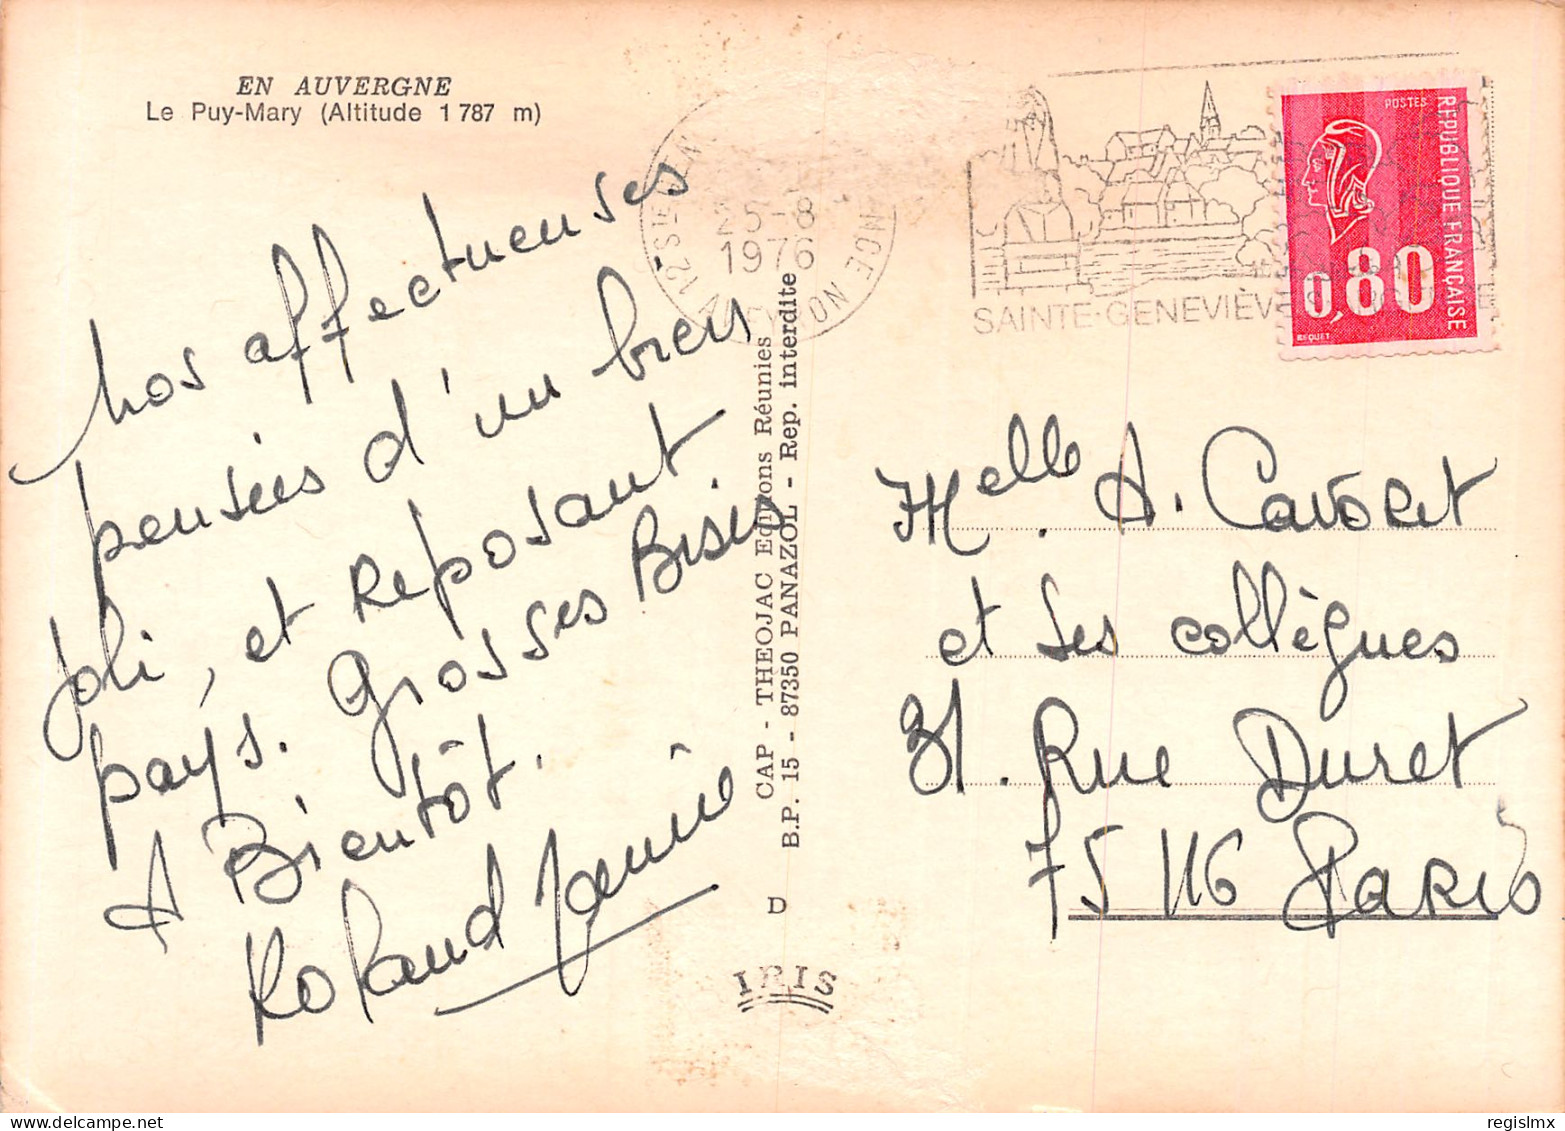 EN AUVERGNE
Le Puy-Mary (Altitude 1 787 m)
Nos affectueuses
pensées d'un bien
joli, et reposant
pays. Grosses Bises
A Bientôt.
Roland Jennie
CAP - THEOJAC Editions Réunies
B.P. 15 - 87350 PANAZOL - Rep. interdite
D
IRIS
12 STE GEN
25-8
1976
AVEYRON
SAINTE-GENEVIÈV
POSTES
REPUBLIQUE FRANÇAISE
0,80
BEQUET
Melle A. Cavoret
et ses collègues
31. Rue Duret
75116 Paris
regislmx